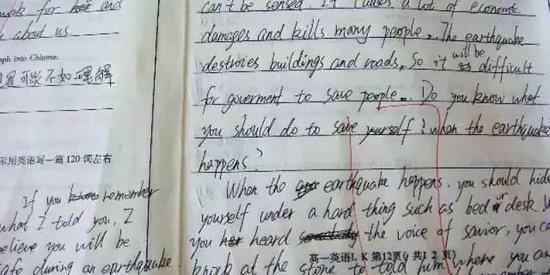 for and
about us.
ph into Chinese.
可能不如理解
示用英语写一篇 120 词左右
If you remember
what I told you, I
believe you will be
safe during an earthquake
can't be sensed. It causes a lot of economic
damages and kills many people. The earthquake
destroies buildings and roads. So it will be difficult
for goverment to save people. Do you know what
you should do to save yourself? when the earthquake
happens?
When the earthquake happens, you should hide
yourself under a hard thing such as bed or desk.
you heard the voice of savior, you
高一英语L K 第12页(共12页)
at the stone to told him where you are